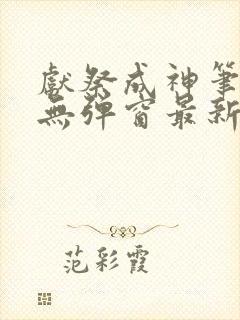 獻祭成神筆
無彈窗最新
范彩霞